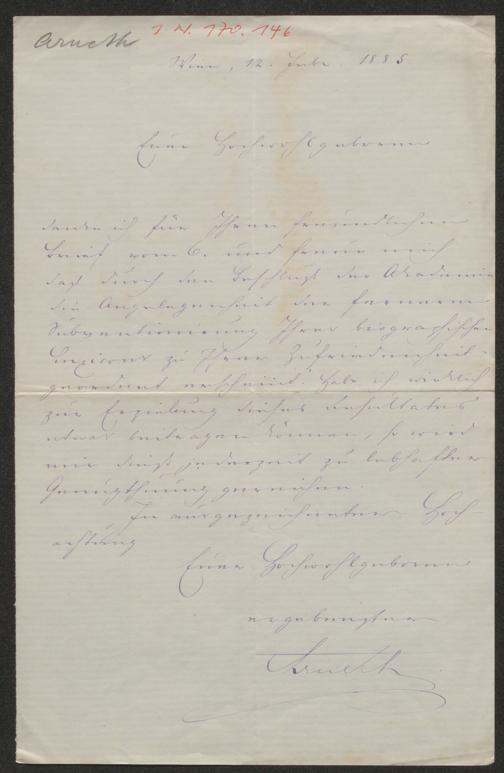 Arneth
I N. 170.146
Wien, 12. Febr. 1885
Euer Hochwohlgeboren
danke ich für Ihren freundlichen
Brief vom 6. und freue mich
daß durch den Beschluß der Akademie
die Angelegenheit der ferneren
Subventionierung Ihres biographischen
Lexicons zu Ihrer Zufriedenheit
geordnet erscheint. Habe ich wirklich
zur Erzielung dieses Resultates
etwas beitragen können, so wird
mir dieß jederzeit zu lebhafter
Genugthuung gereichen.
In ausgezeichneter Hoch-
achtung
Euer Hochwohlgeboren
ergebenster
Arneth